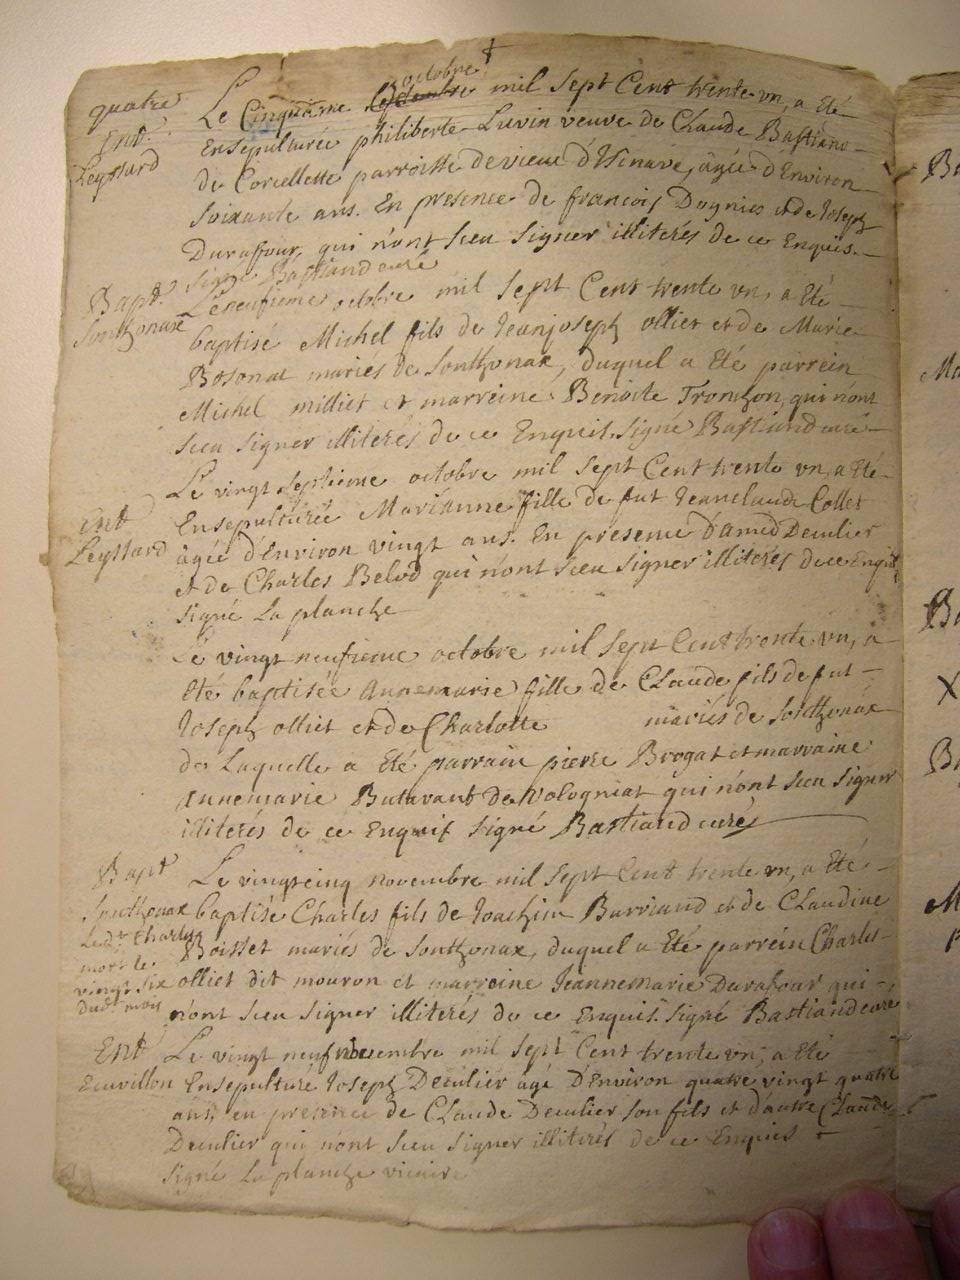 quatre
Ent
Leyssard
octobre
Le Cinquième septembre mil sept Cent trente vn, a Eté
Ensepulturée philiberte Luvin veuve de Claude Bastiand
de Corcellette parroisse de vieux d'Isenave, âgée d'Environ
soixante ans. En presence de francois Dognies et de Joseph
Duraffour, qui n'ont sceu signer illiterés de ce Enquis.
signé Bastiand curé
Bapt.
Sonthonax
Le neufieme octobre mil sept Cent trente vn, a Eté
baptisé Michel fils de Jeanjoseph olliet et de Marie
Bosonat mariés de Sonthonax, duquel a Eté parrein
Michel milliet et marreine Benoite Tronchon, qui n'ont
sceu signer illiterés de ce Enquis. signé Bastiand curé
Ent
Leyssard
Le vingt septieme octobre mil sept Cent trente vn, a Eté
Ensepulturée Marianne fille de fut Jeanclaude Collet
âgée d'Environ vingt ans. En presence d'amed Deculier
et de Charles Belod qui n'ont sceu signer illiterés de ce Enquis
signé La planche
Le vingt neufieme octobre mil sept Cent trente vn, a
Eté baptisée annemarie fille de Claude fils de fut
Joseph olliet et de Charlotte mariés de Sonthonax
de Laquelle a Eté parrain pierre Brogat et marraine
annemarie Butavant de Volognat qui n'ont sceu signer
illiterés de ce Enquis signé Bastiand curé
Bapt
Sonthonax
Led.t Charles
mort le
vingt six
dud.t mois
Le vingtcinq novembre mil sept Cent trente vn, a Eté
baptisé Charles fils de Joachim Barriand et de Claudine
Boisset mariés de Sonthonax, duquel a Eté parrein Charles
olliet dit mouron et marreine Jeannemarie Durafour qui
n'ont sceu signer illiterés de ce Enquis. signé Bastiand curé
Ent
Ecuvillon
Le vingt neuf novembre mil sept Cent trente vn, a Eté
Ensepulturé Joseph Deculier âgé d'Environ quatre vingt quatre
ans, en presence de Claude Deculier son fils et d'autre Claude
Deculier qui n'ont sceu signer illiterés de ce Enquies
signé La planche vicaire